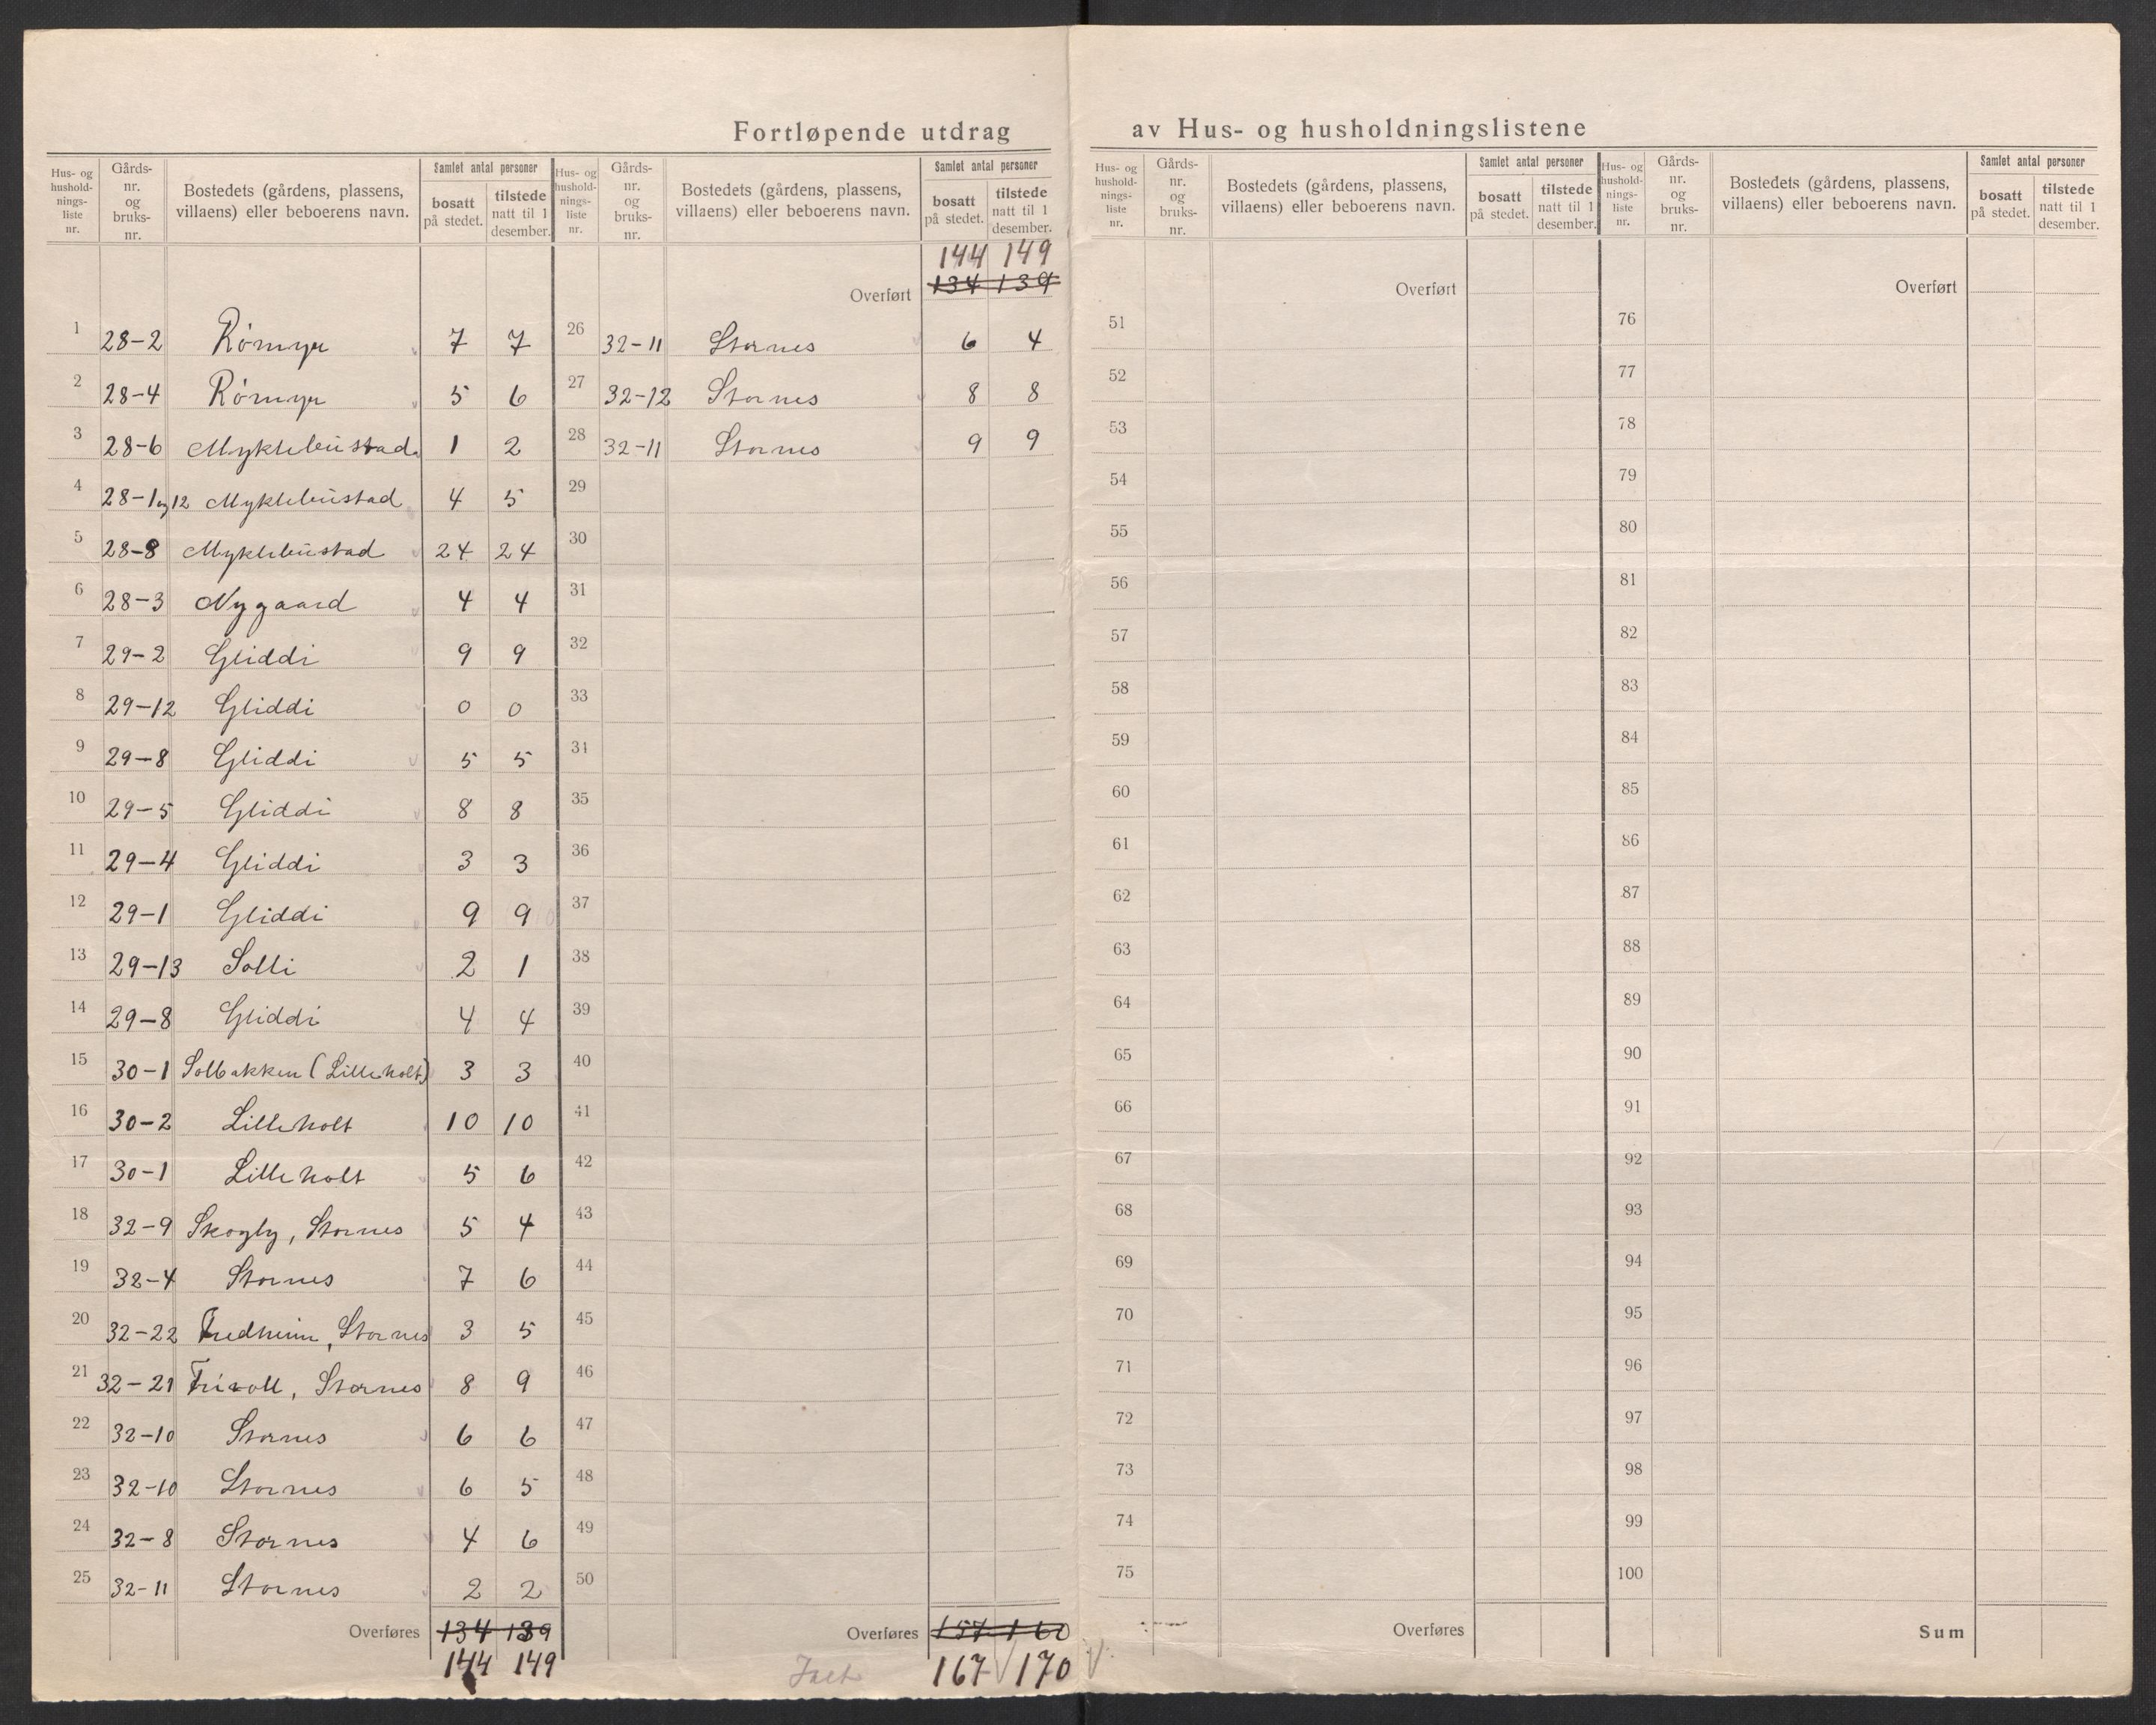 Fortløpende utdrag av Hus- og husholdningslistene
Hus- og hushold-nings-liste nr. Gårds-nr. og bruks-nr. Bostedets (gårdens, plassens, villaens) eller beboerens navn. Samlet antal personer bosatt på stedet. tilstede natt til 1 desember.
1 28-2 Römyr 7 7
2 28-4 Römyr 5 6
3 28-6 Myklebustad 1 2
4 28-1 og 12 Myklebustad 4 5
5 28-8 Myklebustad 24 24
6 28-3 Nygaard 4 4
7 29-2 Gliddi 9 9
8 29-12 Gliddi 0 0
9 29-8 Gliddi 5 5
10 29-5 Gliddi 8 8
11 29-4 Gliddi 3 3
12 29-1 Gliddi 9 9
13 29-13 Solli 2 1
14 29-8 Gliddi 4 4
15 30-1 Solbakken (Lilleholt) 3 3
16 30-2 Lilleholt 10 10
17 30-1 Lilleholt 5 6
18 32-9 Skogly, Stornes 5 4
19 32-4 Stornes 7 6
20 32-22 Fredheim, Stornes 3 5
21 32-21 Trivoll, Stornes 8 9
22 32-10 Stornes 6 6
23 32-10 Stornes 6 5
24 32-8 Stornes 4 6
25 32-11 Stornes 2 2
Overføres 134 139
144 149
Hus- og hushold-nings-liste nr. Gårds-nr. og bruks-nr. Bostedets (gårdens, plassens, villaens) eller beboerens navn. Samlet antal personer bosatt på stedet. tilstede natt til 1 desember.
144 149
Overført 134 139
26 32-11 Stornes 6 4
27 32-12 Stornes 8 8
28 32-11 Stornes 9 9
29
30
31
32
33
34
35
36
37
38
39
40
41
42
43
44
45
46
47
48
49
50
Overføres 157 160
167 170
Hus- og hushold-nings-liste nr. Gårds-nr. og bruks-nr. Bostedets (gårdens, plassens, villaens) eller beboerens navn. Samlet antal personer bosatt på stedet. tilstede natt til 1 desember.
Overført
51
52
53
54
55
56
57
58
59
60
61
62
63
64
65
66
67
68
69
70
71
72
73
74
75
Overføres
Hus- og hushold-nings-liste nr. Gårds-nr. og bruks-nr. Bostedets (gårdens, plassens, villaens) eller beboerens navn. Samlet antal personer bosatt på stedet. tilstede natt til 1 desember.
Overført
76
77
78
79
80
81
82
83
84
85
86
87
88
89
90
91
92
93
94
95
96
97
98
99
100
Sum